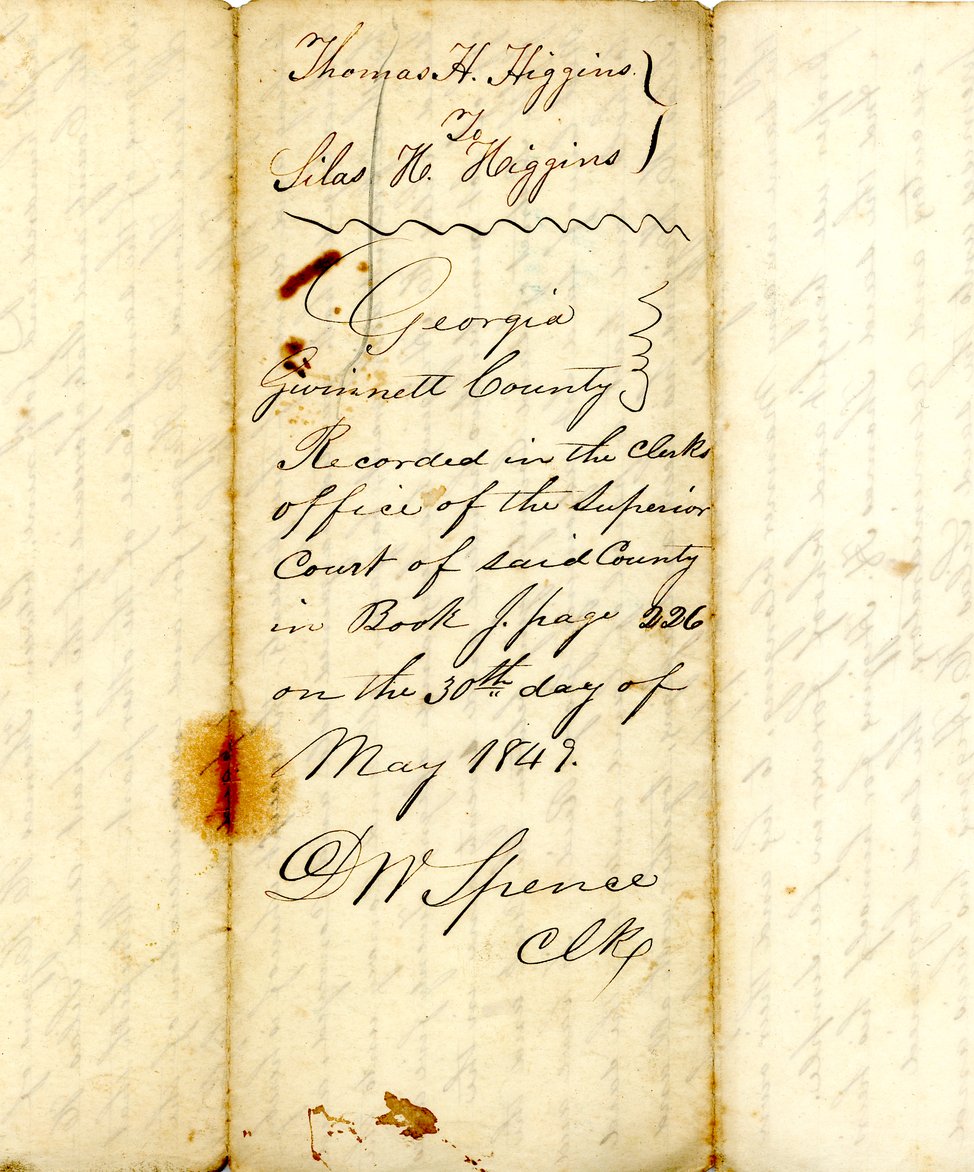 Thomas H. Higgins
To
Silas H. Higgins
Georgia
Gwinnett County
Recorded in the Clerks
office of the Superior
Court of said County
in Book J. page 226
on the 30th day of
May 1849.
D W Spence
Clk